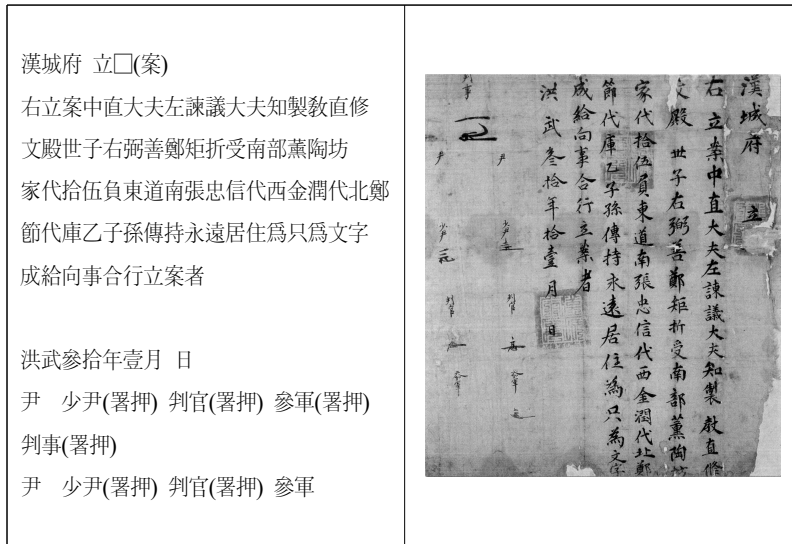 漢城府 立□(案)
右立案中直大夫左諫議大夫知製敎直修
文殿世子右弼善鄭矩折受南部薰陶坊
家代拾伍負東道南張忠信代西金潤代北鄭
節代庫乙子孫傳持永遠居住爲只爲文字
成給向事合行立案者
洪武參拾年壹月 日
尹 少尹(署押) 判官(署押) 參軍(署押)
判事(署押)
尹 少尹(署押) 判官(署押) 參軍
漢城府 立
右立案中直大夫左諫議大夫知製 敎直修
文殿 世子右弼善鄭矩折受南部薰陶坊
家代拾伍負東道南張忠信代西金潤代北鄭
節代庫乙子孫傳持永遠居住爲只爲文字
成給向事合行立案者
洪武叄拾年拾壹月 日
尹 少尹 判官 參軍
判事
尹 少尹 判官 參軍